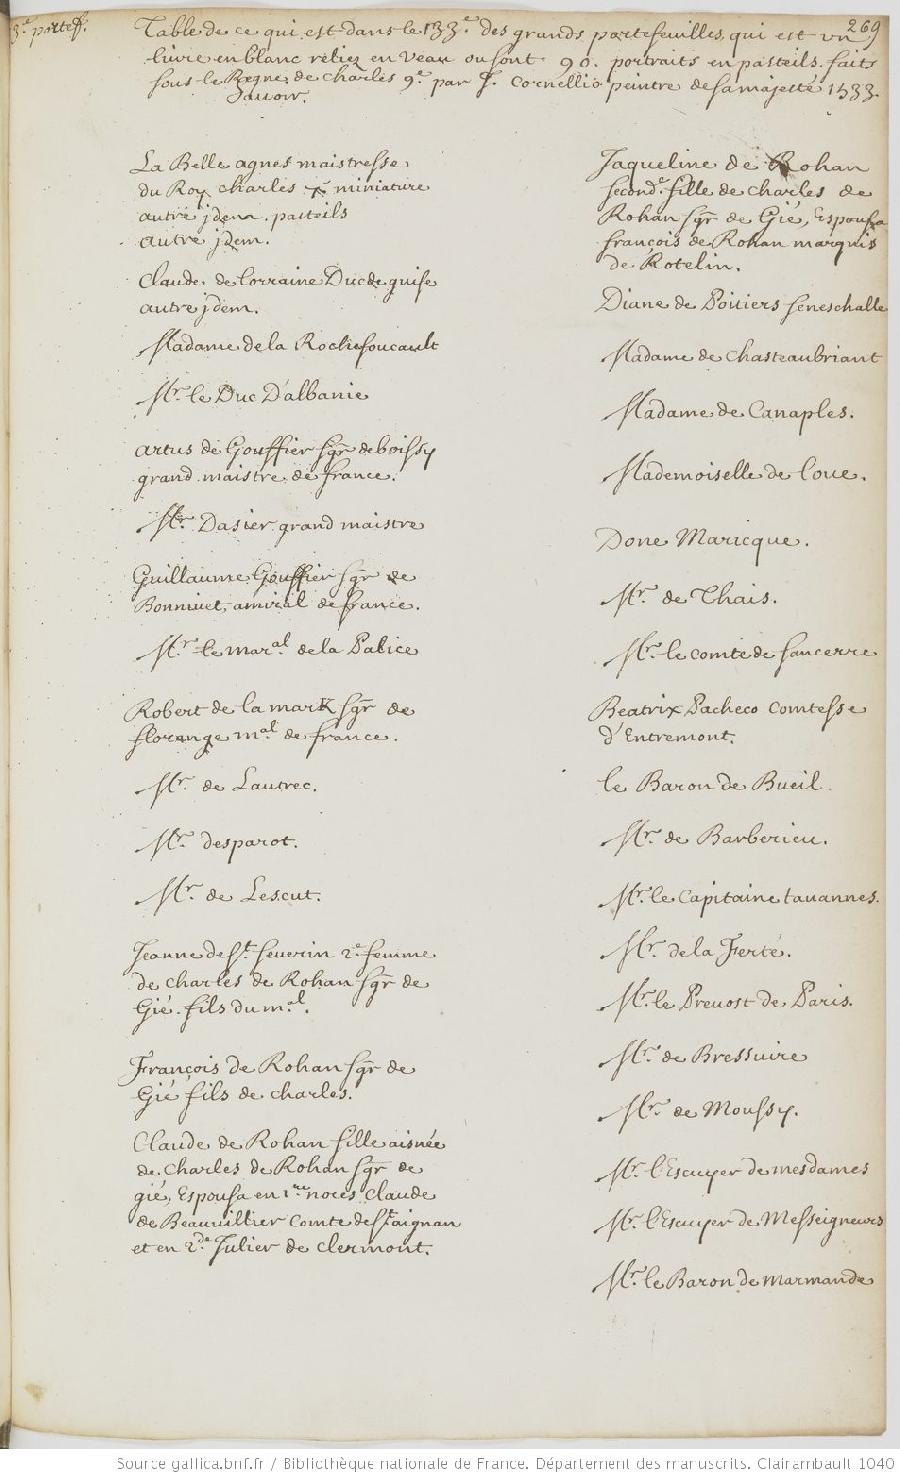 3.e portef.
269
Table de ce qui est dans le 133.e des grands portefeuilles, qui est un
livre en blanc reliez en veau ou sont 90. portraits en pasteils faits
sous le Regne de charles 9.e par J. Cornellio peintre de sa majesté 1533.
Savoir.
La Belle agnes maistresse
du Roy charles 7 miniature
autre jdem. pasteils
autre jdem.
Claude de Lorraine Duc de guise
autre jdem.
Madame de la Rochefoucault
Mr. le Duc D'albanie
artus de Gouffier sgr. de boissy
grand maistre de france.
Mr. Dasier grand maistre
Guillaume Gouffier sgr de
Bonnivet, amiral de france.
Mr. le mar.al de la Palice
Robert de la mark sgr de
florange m.al de france.
Mr. de Lautrec.
Mr. desparot.
Mr. de Lescut.
Jeanne de St. Severin 2.e femme
de charles de Rohan sgr de
Gié. fils du m.al.
François de Rohan sgr de
Gié fils de charles.
Claude de Rohan fille aisnée
de charles de Rohan sgr de
gié, Espousa en 1.re noces Claude
de Beauvillier Comte de St aignan
et en 2.de Julien de clermont.
Jaqueline de Rohan
second.e fille de charles de
Rohan sgr de Gié, Espousa
françois de Rohan marquis
de Rotelin.
Diane de Poitiers seneschalle
Madame de chasteaubriant
Madame de Canaples.
Mademoiselle de Loue.
Done Maricque.
Mr. de Thais.
Mr. le comte de sancerre
Beatrix Pacheco comtesse
d'Entremont.
le Baron de Bueil.
Mr. de Barberieu.
Mr. le capitaine tavannes.
Mr. de la Ferté.
Mr. le Prevost de Paris.
Mr. de Bressuire
Mr. de Moussy.
Mr. l'Escuyer de mesdames
Mr. l'Escuyer de Messeigneurs
Mr. le Baron de marmande
Source gallica.bnf.fr / Bibliothèque nationale de France. Département des manuscrits. Clairambault 1040